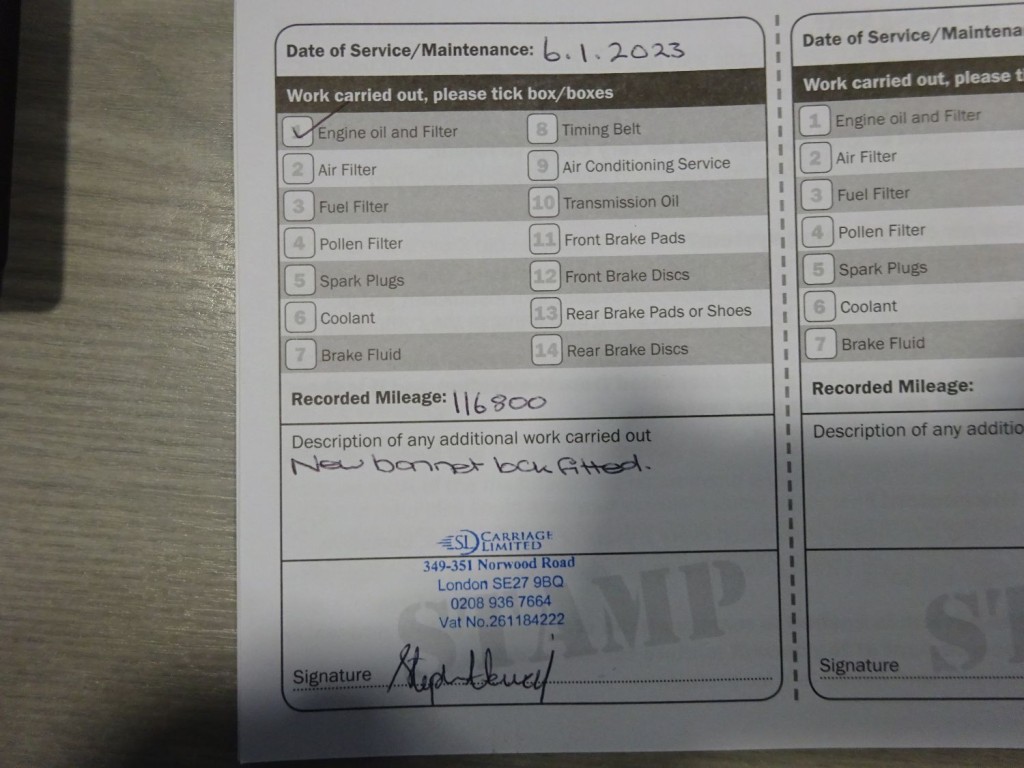 Date of Service/Maintenance: 6.1.2023
Work carried out, please tick box/boxes
Engine oil and Filter
8 Timing Belt
2 Air Filter
9 Air Conditioning Service
3 Fuel Filter
10 Transmission Oil
4 Pollen Filter
11 Front Brake Pads
5 Spark Plugs
12 Front Brake Discs
6 Coolant
13 Rear Brake Pads or Shoes
7 Brake Fluid
14 Rear Brake Discs
Recorded Mileage: 116800
Description of any additional work carried out
New bonnet fitted.
SD CARRIAGE
LIMITED
349-351 Norwood Road
London SE27 9BQ
0208 936 7664
Vat No.261184222
STAMP
Signature
Date of Service/Maintena
Work carried out, please ti
1 Engine oil and Filter
2 Air Filter
3 Fuel Filter
4 Pollen Filter
5 Spark Plugs
6 Coolant
7 Brake Fluid
Recorded Mileage:
Description of any additio
ST
Signature